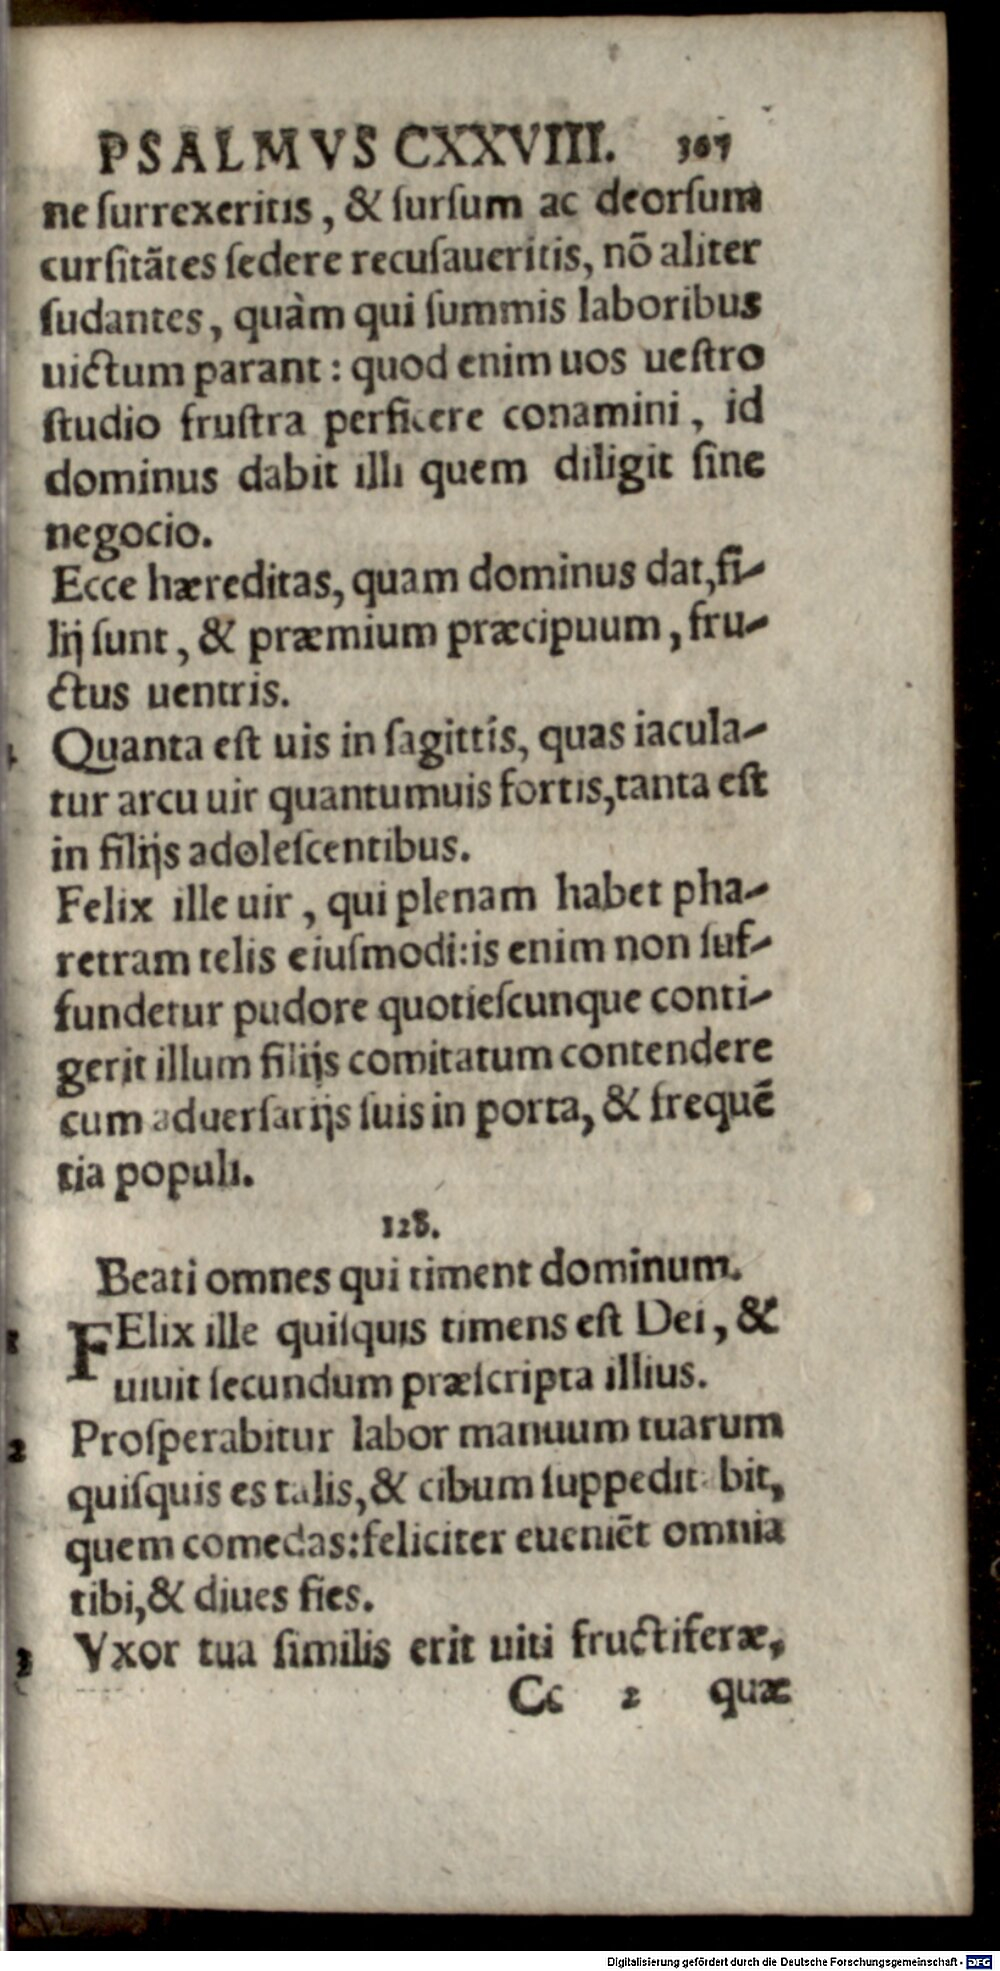 PSALMVS CXXVIII. 367
ne ſurrexeritis, & ſurſum ac deorſum
curſitātes ſedere recuſaueritis, nō aliter
ſudantes, quàm qui ſummis laboribus
uictum parant: quod enim uos ueſtro
ſtudio fruſtra perficere conamini, id
dominus dabit illi quem diligit ſine
negocio.
Ecce hæreditas, quam dominus dat, fi-
lij ſunt, & præmium præcipuum, fru-
ctus uentris.
4 Quanta eſt uis in ſagittis, quas iacula-
tur arcu uir quantumuis fortis, tanta eſt
in filijs adoleſcentibus.
Felix ille uir, qui plenam habet pha-
retram telis eiuſmodi: is enim non ſuf-
fundetur pudore quotieſcunque conti-
gerit illum filijs comitatum contendere
cum aduerſarijs ſuis in porta, & frequē
tia populi.
128.
Beati omnes qui timent dominum.
1 FElix ille quiſquis timens eſt Dei, &
uiuit ſecundum præſcripta illius.
2 Proſperabitur labor manuum tuarum
quiſquis es talis, & cibum ſuppedit bit,
quem comedas: feliciter eueniēt omnia
tibi, & diues fies.
3 Vxor tua ſimilis erit uiti fructiferæ,
Cc 2 quæ
Digitalisierung gefördert durch die Deutsche Forschungsgemeinschaft - DFG